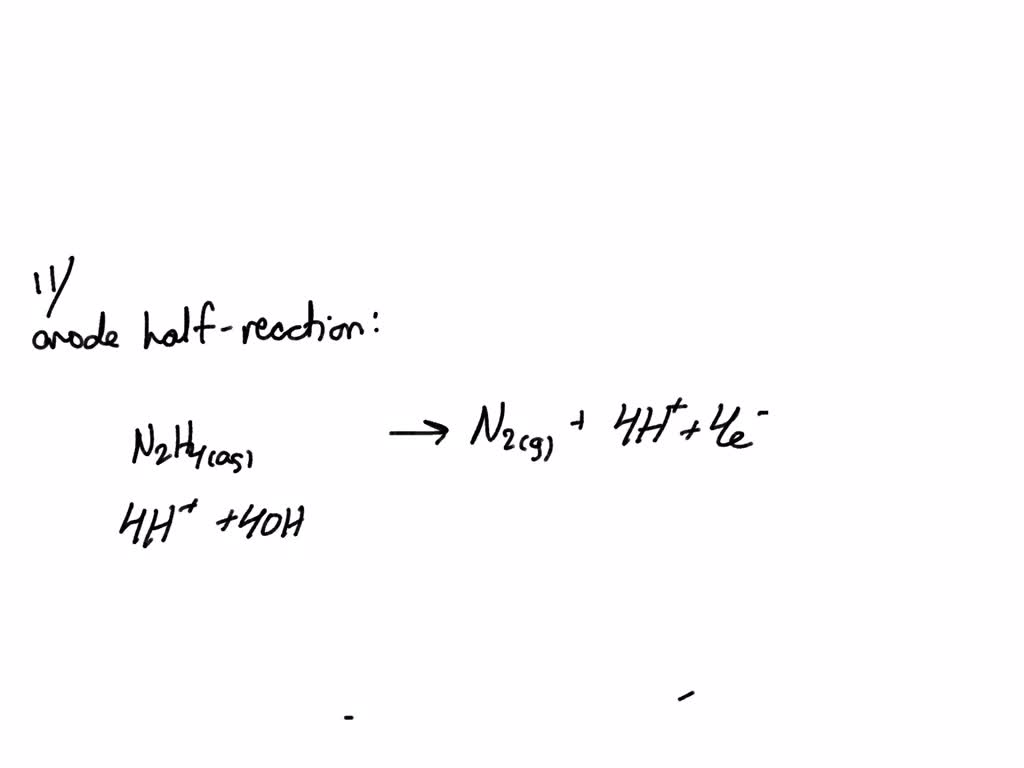 11/
anode half-reaction:
N₂H₄(aq) → N₂(g) + 4H⁺ + 4e⁻
4H⁺ + 4OH